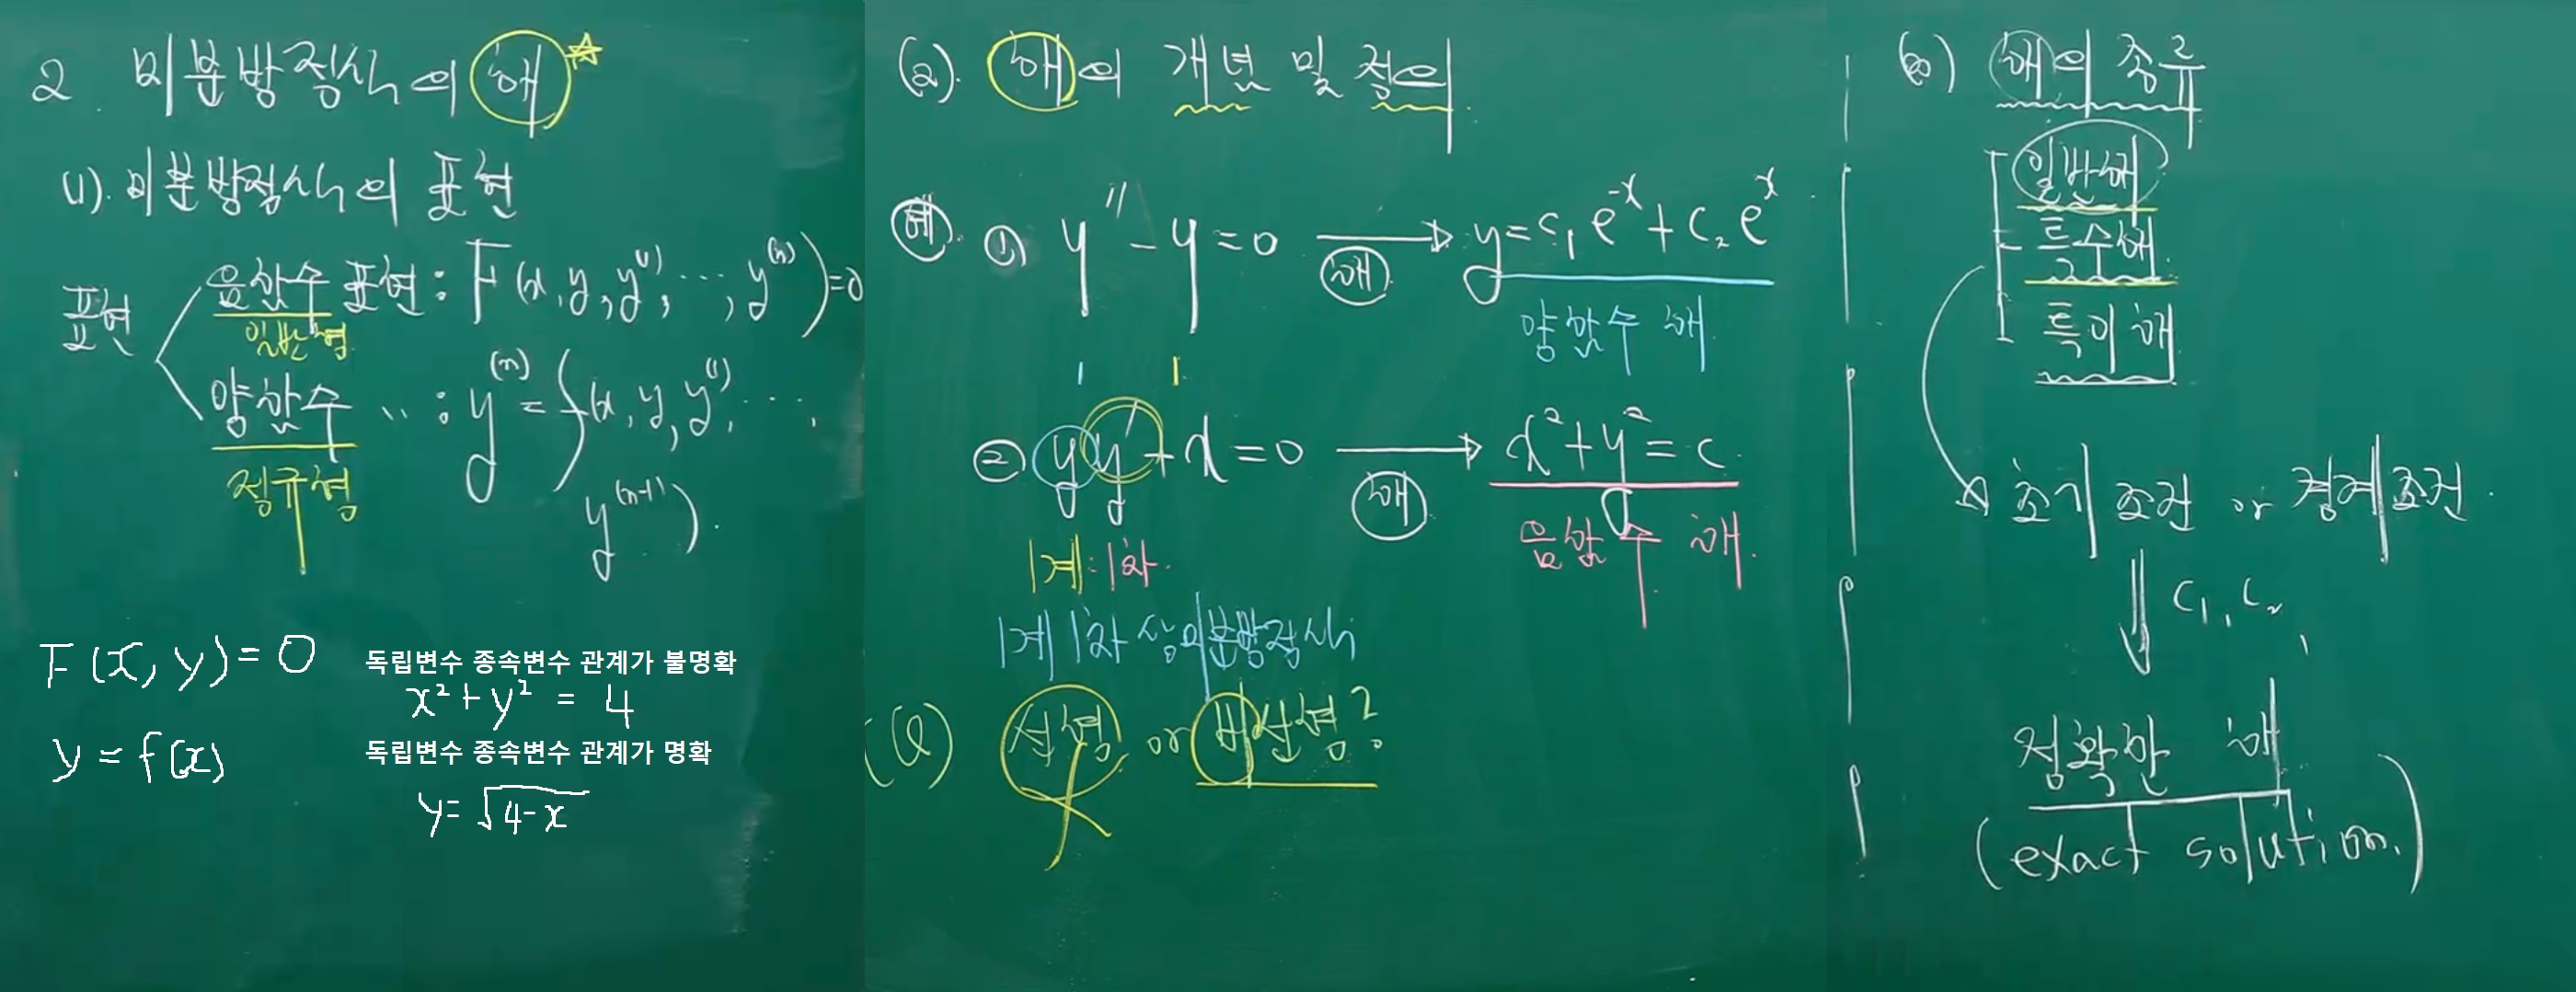 2. 미분방정식의 해
(1). 미분방정식의 표현
표현
음함수 표현 : F(x, y, y⁽¹⁾, ⋯, y⁽ⁿ⁾)=0
일반형
양함수 〃 : y⁽ⁿ⁾ = f(x, y, y⁽¹⁾, ⋯,
y⁽ⁿ⁻¹⁾).
정규형
F(x, y) = 0
독립변수 종속변수 관계가 불명확
x² + y² = 4
y = f(x)
독립변수 종속변수 관계가 명확
y = √4-x
(2). 해의 개념 및 정의
예. ① y″ - y = 0 → 해 y = c₁e⁻ˣ + c₂eˣ
양함수 해
1 1
② yy′ + x = 0 → 해 x² + y² = c
음함수 해.
1계 : 1차.
1계 1차 상미분방정식
(Q) 선형 or 비선형?
(3) 해의 종류
일반해
특수해
특이해
초기조건 or 경계조건.
c₁, c₂,
정확한 해
(exact solution.)